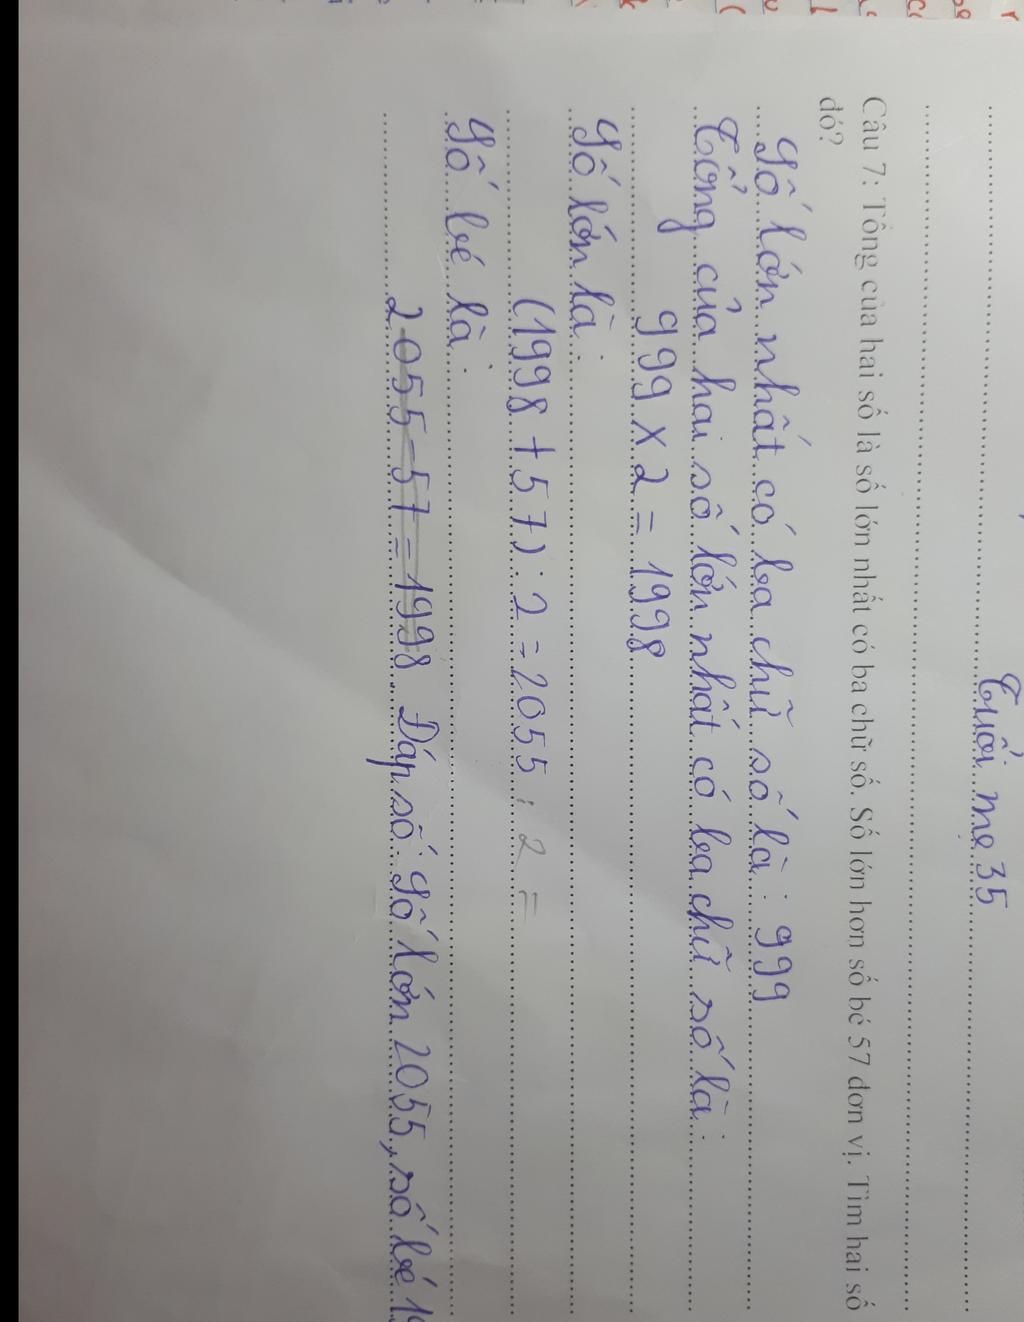 Tuổi mẹ 35
Câu 7: Tổng của hai số là số lớn nhất có ba chữ số. Số lớn hơn số bé 57 đơn vị. Tìm hai số
đó?
Số lớn nhất có ba chữ số là: 999
Tổng của hai số lớn nhất có ba chữ số là:
999 x 2 = 1998
Số lớn là:
(1998 + 57) : 2 = 2055 : 2 =
Số bé là:
2055 - 57 = 1998 Đáp số: Số lớn 2055, số bé